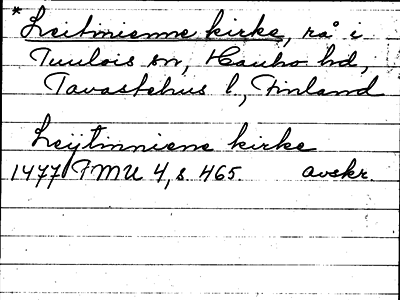 *Leitmienne kirke, rå i
Tuulois sn, Hauho hd,
Tavastehus l., Finland
Leÿtinniene kirke
1477 FMU 4, s. 465. avskr.